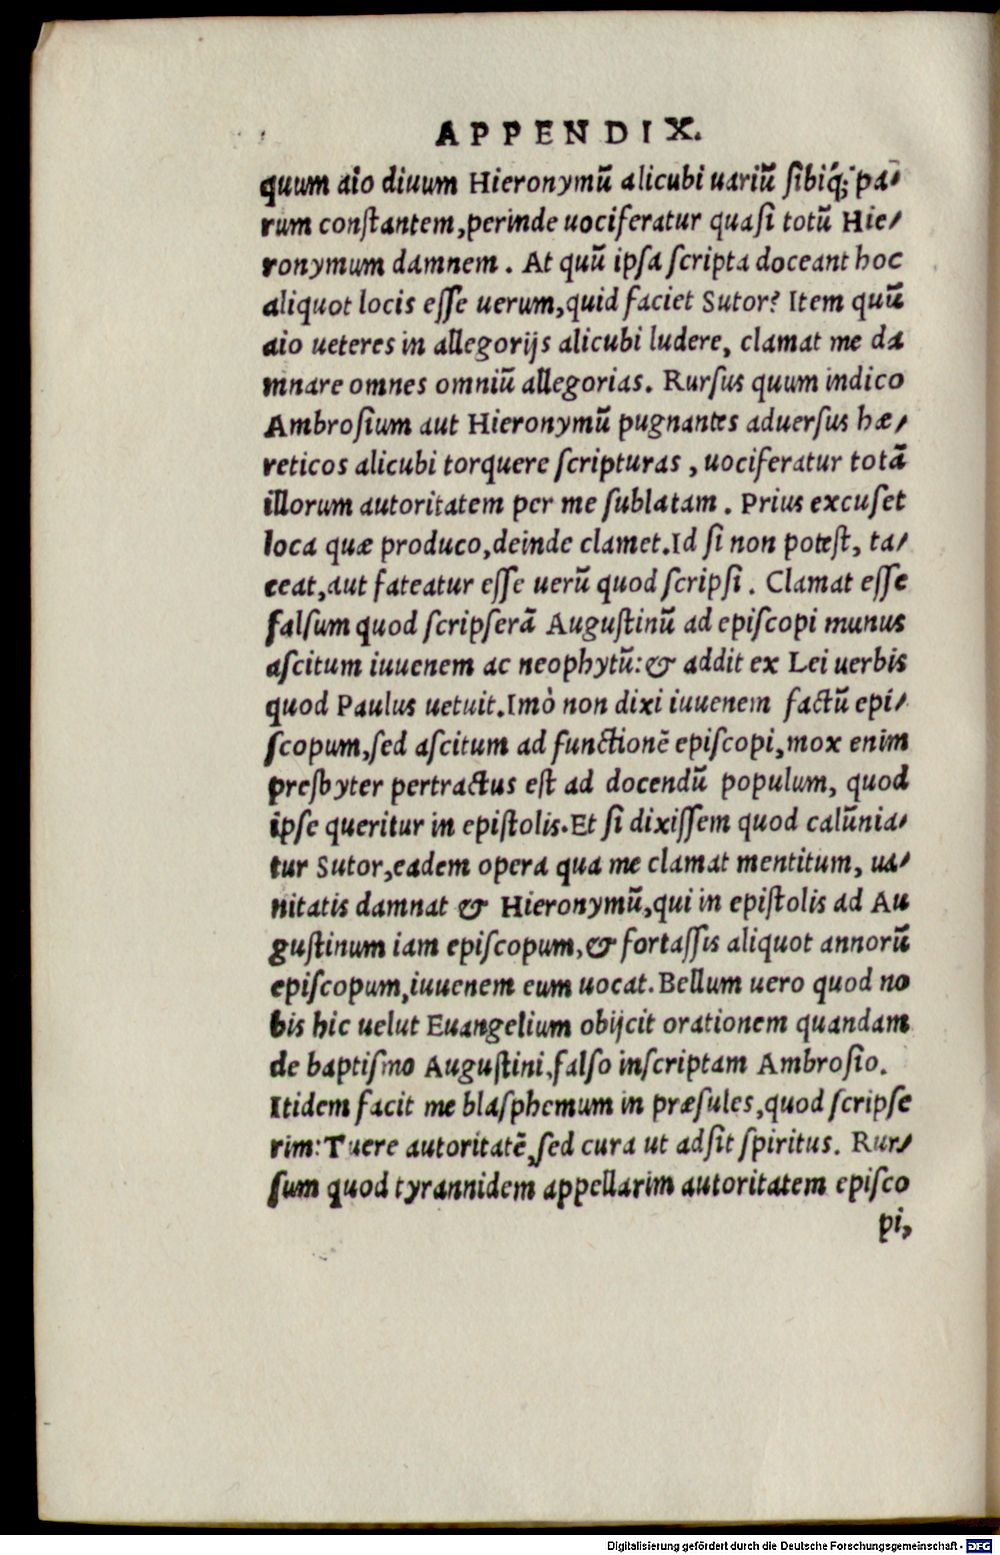 APPENDIX.
quum aio diuum Hieronymũ alicubi uariũ ſibiq́; pa⸗
rum conſtantem,perinde uociferatur quaſi totũ Hie⸗
ronymum damnem . At quũ ipſa ſcripta doceant hoc
aliquot locis eſſe uerum,quid faciet Sutor? Item quũ
aio ueteres in allegorijs alicubi ludere, clamat me da
mnare omnes omniũ allegorias. Rurſus quum indico
Ambroſium aut Hieronymũ pugnantes aduerſus hæ⸗
reticos alicubi torquere ſcripturas , uociferatur totã
illorum autoritatem per me ſublatam . Prius excuſet
loca quæ produco,deinde clamet.Id ſi non poteſt, ta⸗
ceat,aut fateatur eſſe uerũ quod ſcripſi . Clamat eſſe
falſum quod ſcripſerã Auguſtinũ ad epiſcopi munus
aſcitum iuuenem ac neophytũ: & addit ex Lei uerbis
quod Paulus uetuit.Imò non dixi iuuenem factũ epi⸗
ſcopum,ſed aſcitum ad functionẽ epiſcopi,mox enim
preſbyter pertractus eſt ad docendũ populum, quod
ipſe queritur in epiſtolis.Et ſi dixiſſem quod calũnia⸗
tur Sutor,eadem opera qua me clamat mentitum, ua⸗
nitatis damnat & Hieronymũ,qui in epiſtolis ad Au
guſtinum iam epiſcopum,& fortaſſis aliquot annorũ
epiſcopum,iuuenem eum uocat.Bellum uero quod no
bis hic uelut Euangelium obijcit orationem quandam
de baptiſmo Auguſtini,falſo inſcriptam Ambroſio.
Itidem facit me blaſphemum in præſules,quod ſcripſe
rim:Tuere autoritatẽ,ſed cura ut adſit ſpiritus. Rur⸗
ſum quod tyrannidem appellarim autoritatem epiſco
pi,
Digitalisierung gefördert durch die Deutsche Forschungsgemeinschaft - DFG